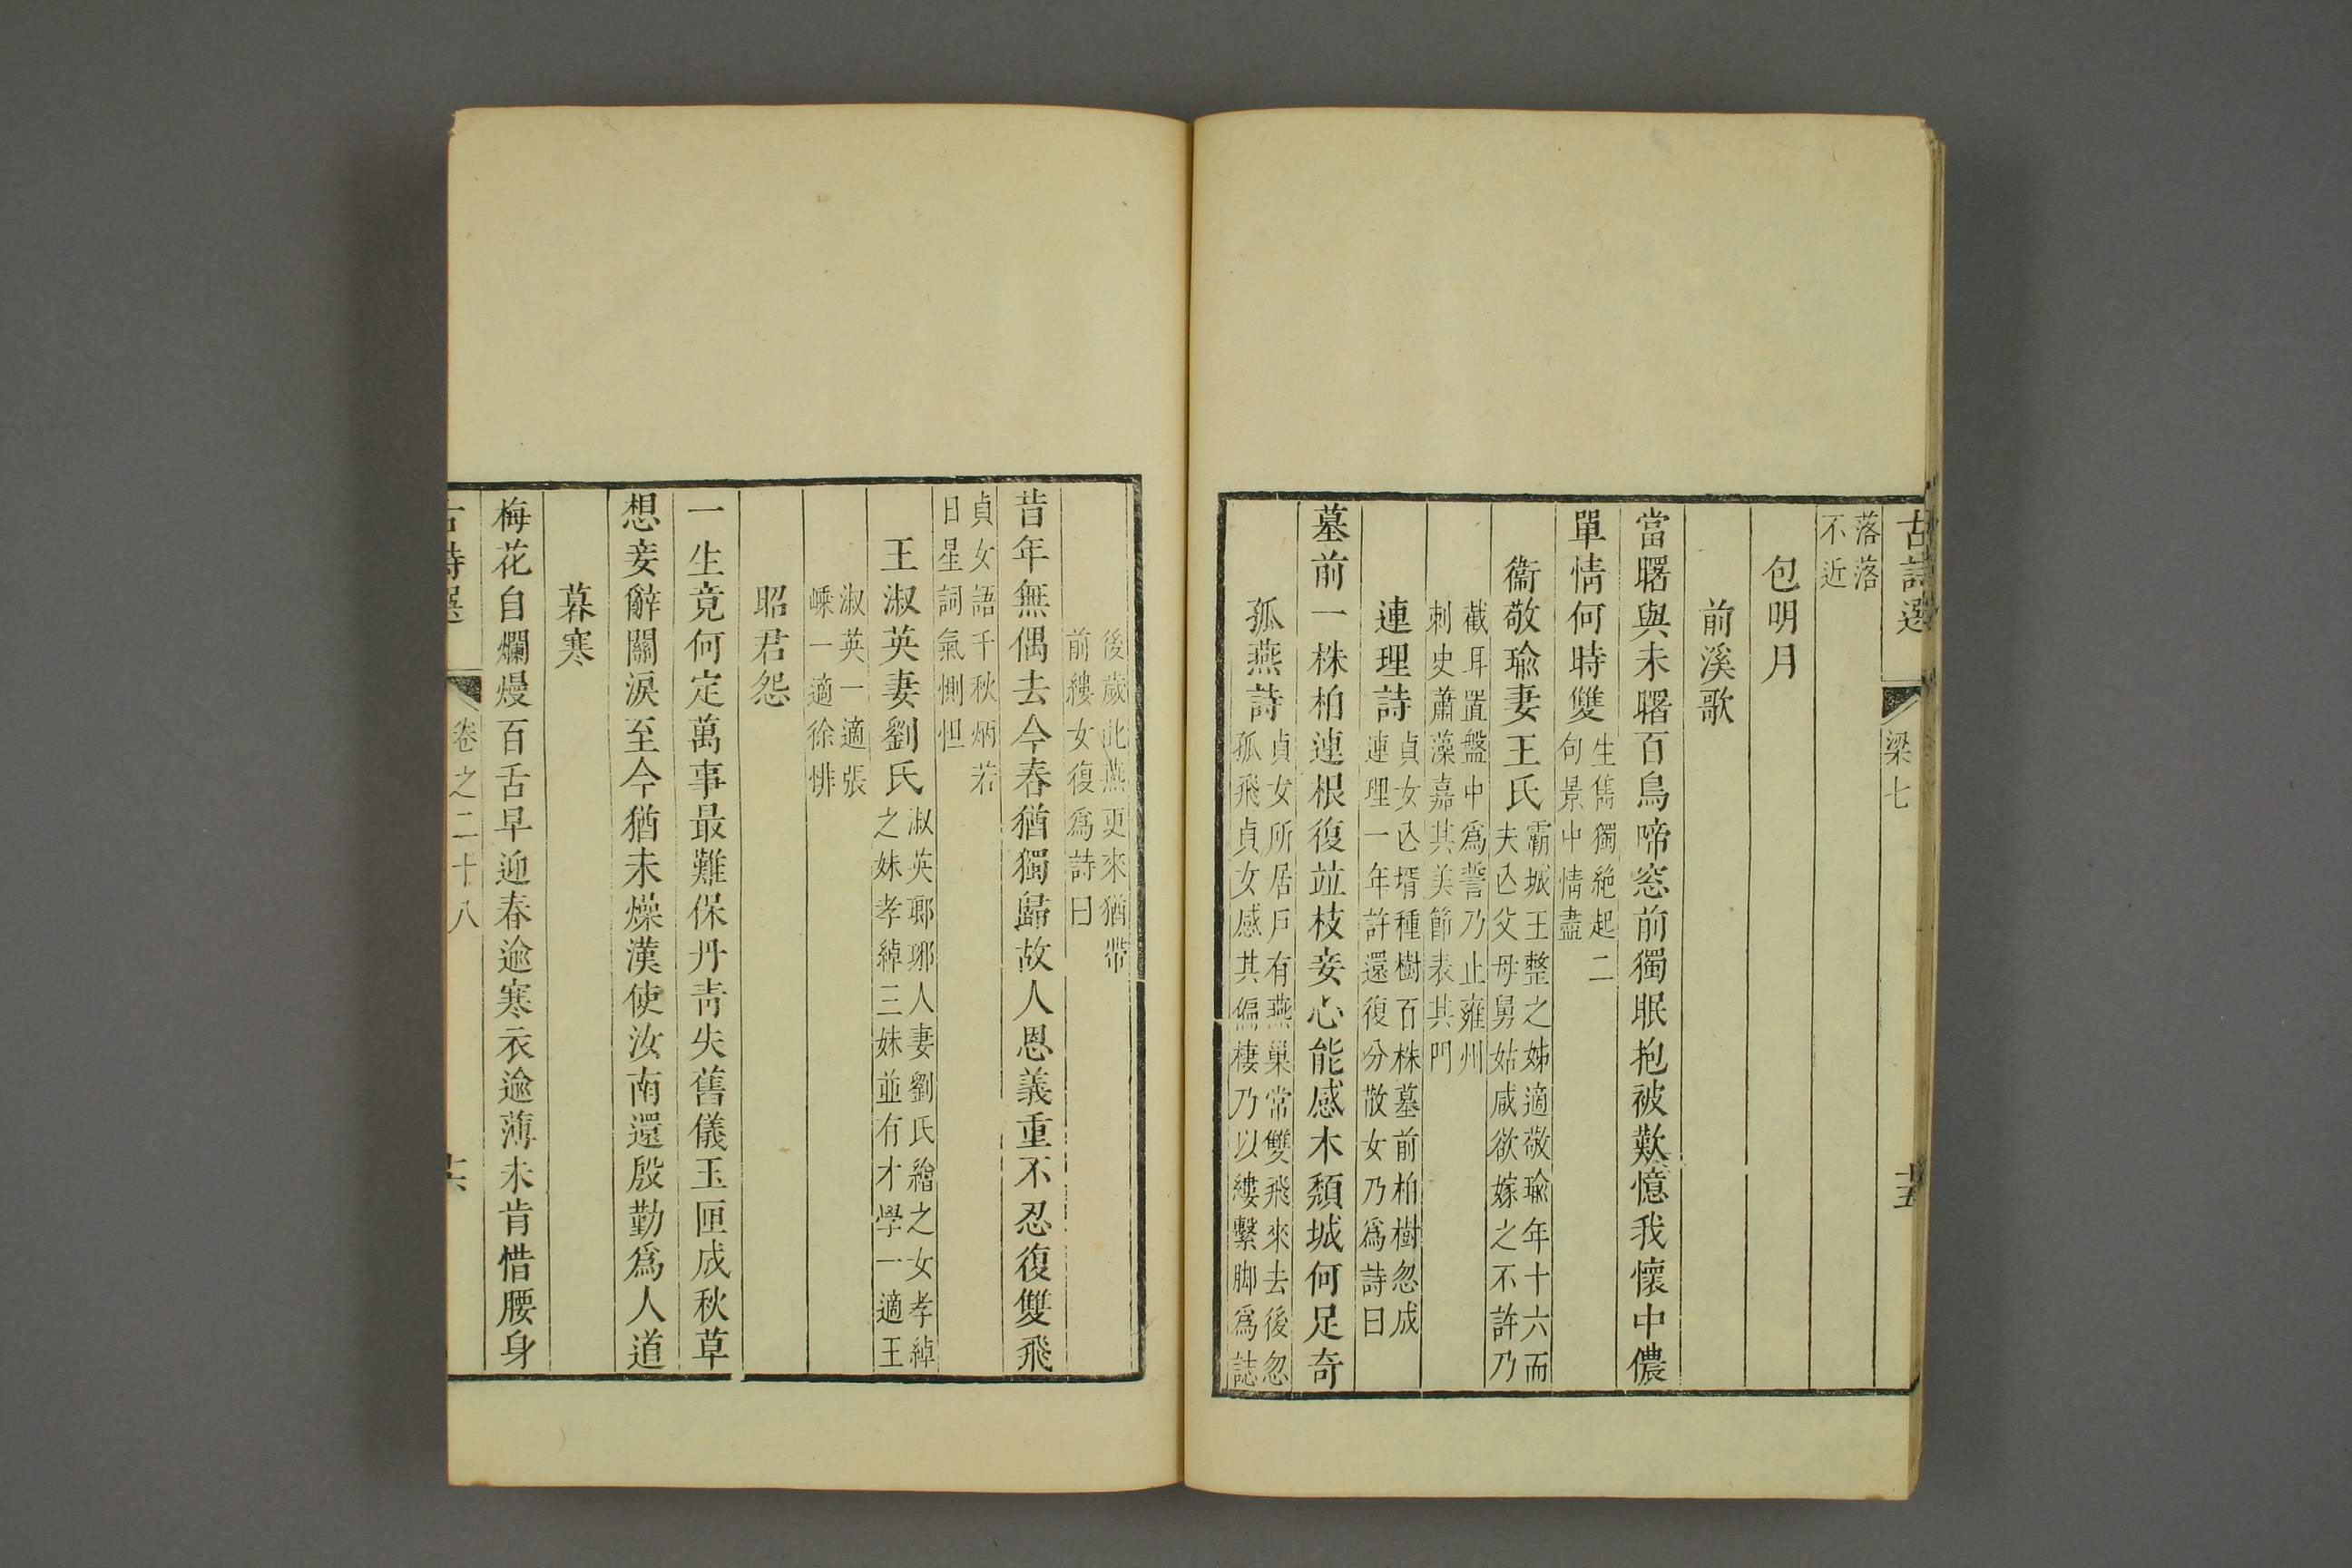 古詩選
梁七
十五
落落
不近
包明月
前溪歌
當曙與未曙百鳥啼窓前獨眠抱被歎憶我懷中儂
單情何時雙
生雋獨絶起二
句景中情盡
衞敬瑜妻王氏
霸城王整之姊適敬瑜年十六而
夫亾父母舅姑咸欲嫁之不許乃
截耳置盤中爲誓乃止雍州
刺史蕭藻嘉其美節表其門
連理詩
貞女亾壻種樹百株墓前柏樹忽成
連理一年許還復分散女乃爲詩曰
墓前一株柏連根復竝枝妾心能感木頽城何足奇
孤燕詩
貞女所居戶有燕巢常雙飛來去後忽
孤飛貞女感其偏棲乃以縷繫脚爲誌
後歲此燕更來猶帶
前縷女復爲詩曰
昔年無偶去今春猶獨歸故人恩義重不忍復雙飛
貞女語千秋炳若
日星詞氣惻怛
王淑英妻劉氏
淑英瑯琊人妻劉氏繪之女孝綽
之妹孝綽三妹並有才學一適王
淑英一適張
嵊一適徐悱
昭君怨
一生竟何定萬事最難保丹靑失舊儀玉匣成秋草
想妾辭關淚至今猶未燥漢使汝南還殷勤爲人道
暮寒
梅花自爛熳百舌早迎春逾寒衣逾薄未肯惜腰身
古詩選
卷之二十八
十六